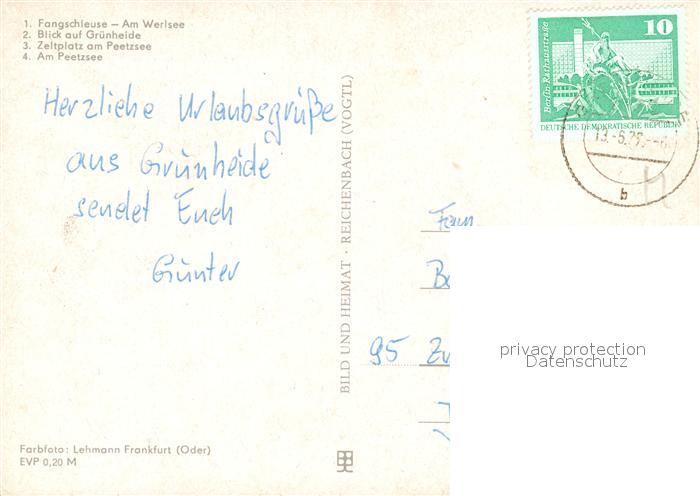 1. Fangschleuse – Am Werlsee
2. Blick auf Grünheide
3. Zeltplatz am Peetzsee
4. Am Peetzsee
Herzliche Urlaubsgrüße
aus Grünheide
sendet Euch
Günter
Farbfoto: Lehmann Frankfurt (Oder)
EVP 0,20 M
BILD UND HEIMAT · REICHENBACH (VOGTL)
10
Berlin-Rathausstraße
DEUTSCHE DEMOKRATISCHE REPUBLIK
b
Fam
95
privacy protection
Datenschutz